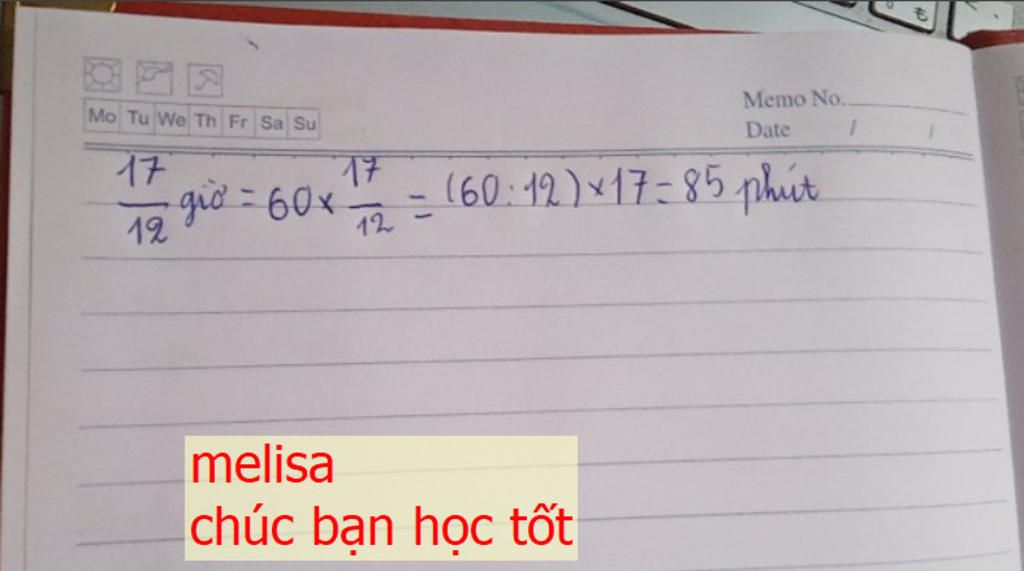 Mo Tu We Th Fr Sa Su
Memo No.
Date / /
17/12 giờ = 60 × 17/12 = (60 : 12) × 17 = 85 phút
melisa
chúc bạn học tốt